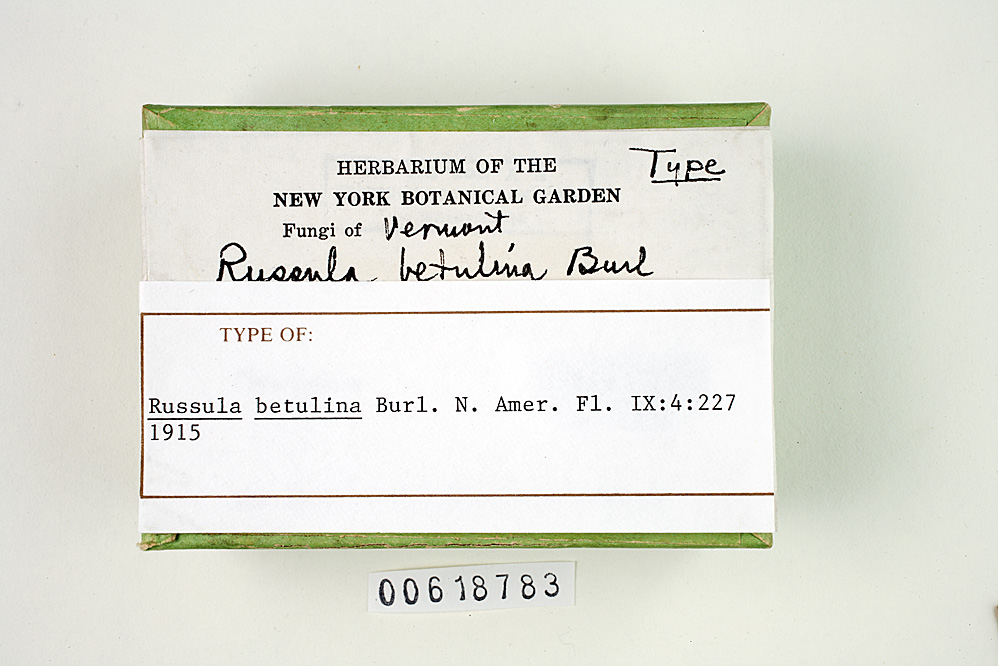 HERBARIUM OF THE
Type
NEW YORK BOTANICAL GARDEN
Fungi of Vermont
Russula betulina Burl
TYPE OF:
Russula betulina Burl. N. Amer. Fl. IX:4:227
1915
00618783